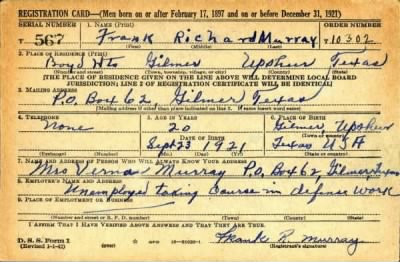 REGISTRATION CARD—(Men born on or after February 17, 1897 and on or before December 31, 1921)
SERIAL NUMBER 1. NAME (Print) ORDER NUMBER
567 Frank Richard Murray 10302
(First) (Middle) (Last)
2. PLACE OF RESIDENCE (Print)
Boyd Hts Gilmer Upshur Texas
(Number and street) (Town, township, village, or city) (County) (State)
[THE PLACE OF RESIDENCE GIVEN ON THE LINE ABOVE WILL DETERMINE LOCAL BOARD
JURISDICTION; LINE 2 OF REGISTRATION CERTIFICATE WILL BE IDENTICAL]
3. MAILING ADDRESS
P.O. Box 62, Gilmer, Texas
[Mailing address if other than place indicated on line 2. If same insert word same]
4. TELEPHONE 5. AGE IN YEARS 6. PLACE OF BIRTH
None 20 Gilmer Upshur
DATE OF BIRTH (Town or county)
Sept 23 1921 Texas USA
(Exchange) (Number) (Mo.) (Day) (Yr.) (State or country)
7. NAME AND ADDRESS OF PERSON WHO WILL ALWAYS KNOW YOUR ADDRESS
Mrs Murray P.O. Box 62 Gilmer, Texas
8. EMPLOYER'S NAME AND ADDRESS
Unemployed taking course in defense work
9. PLACE OF EMPLOYMENT OR BUSINESS
(Number and street or R. F. D. number) (Town) (County) (State)
I AFFIRM THAT I HAVE VERIFIED ABOVE ANSWERS AND THAT THEY ARE TRUE.
D. S. S. Form 1
(Revised 1-1-42) Frank R. Murray
(Registrant's signature)